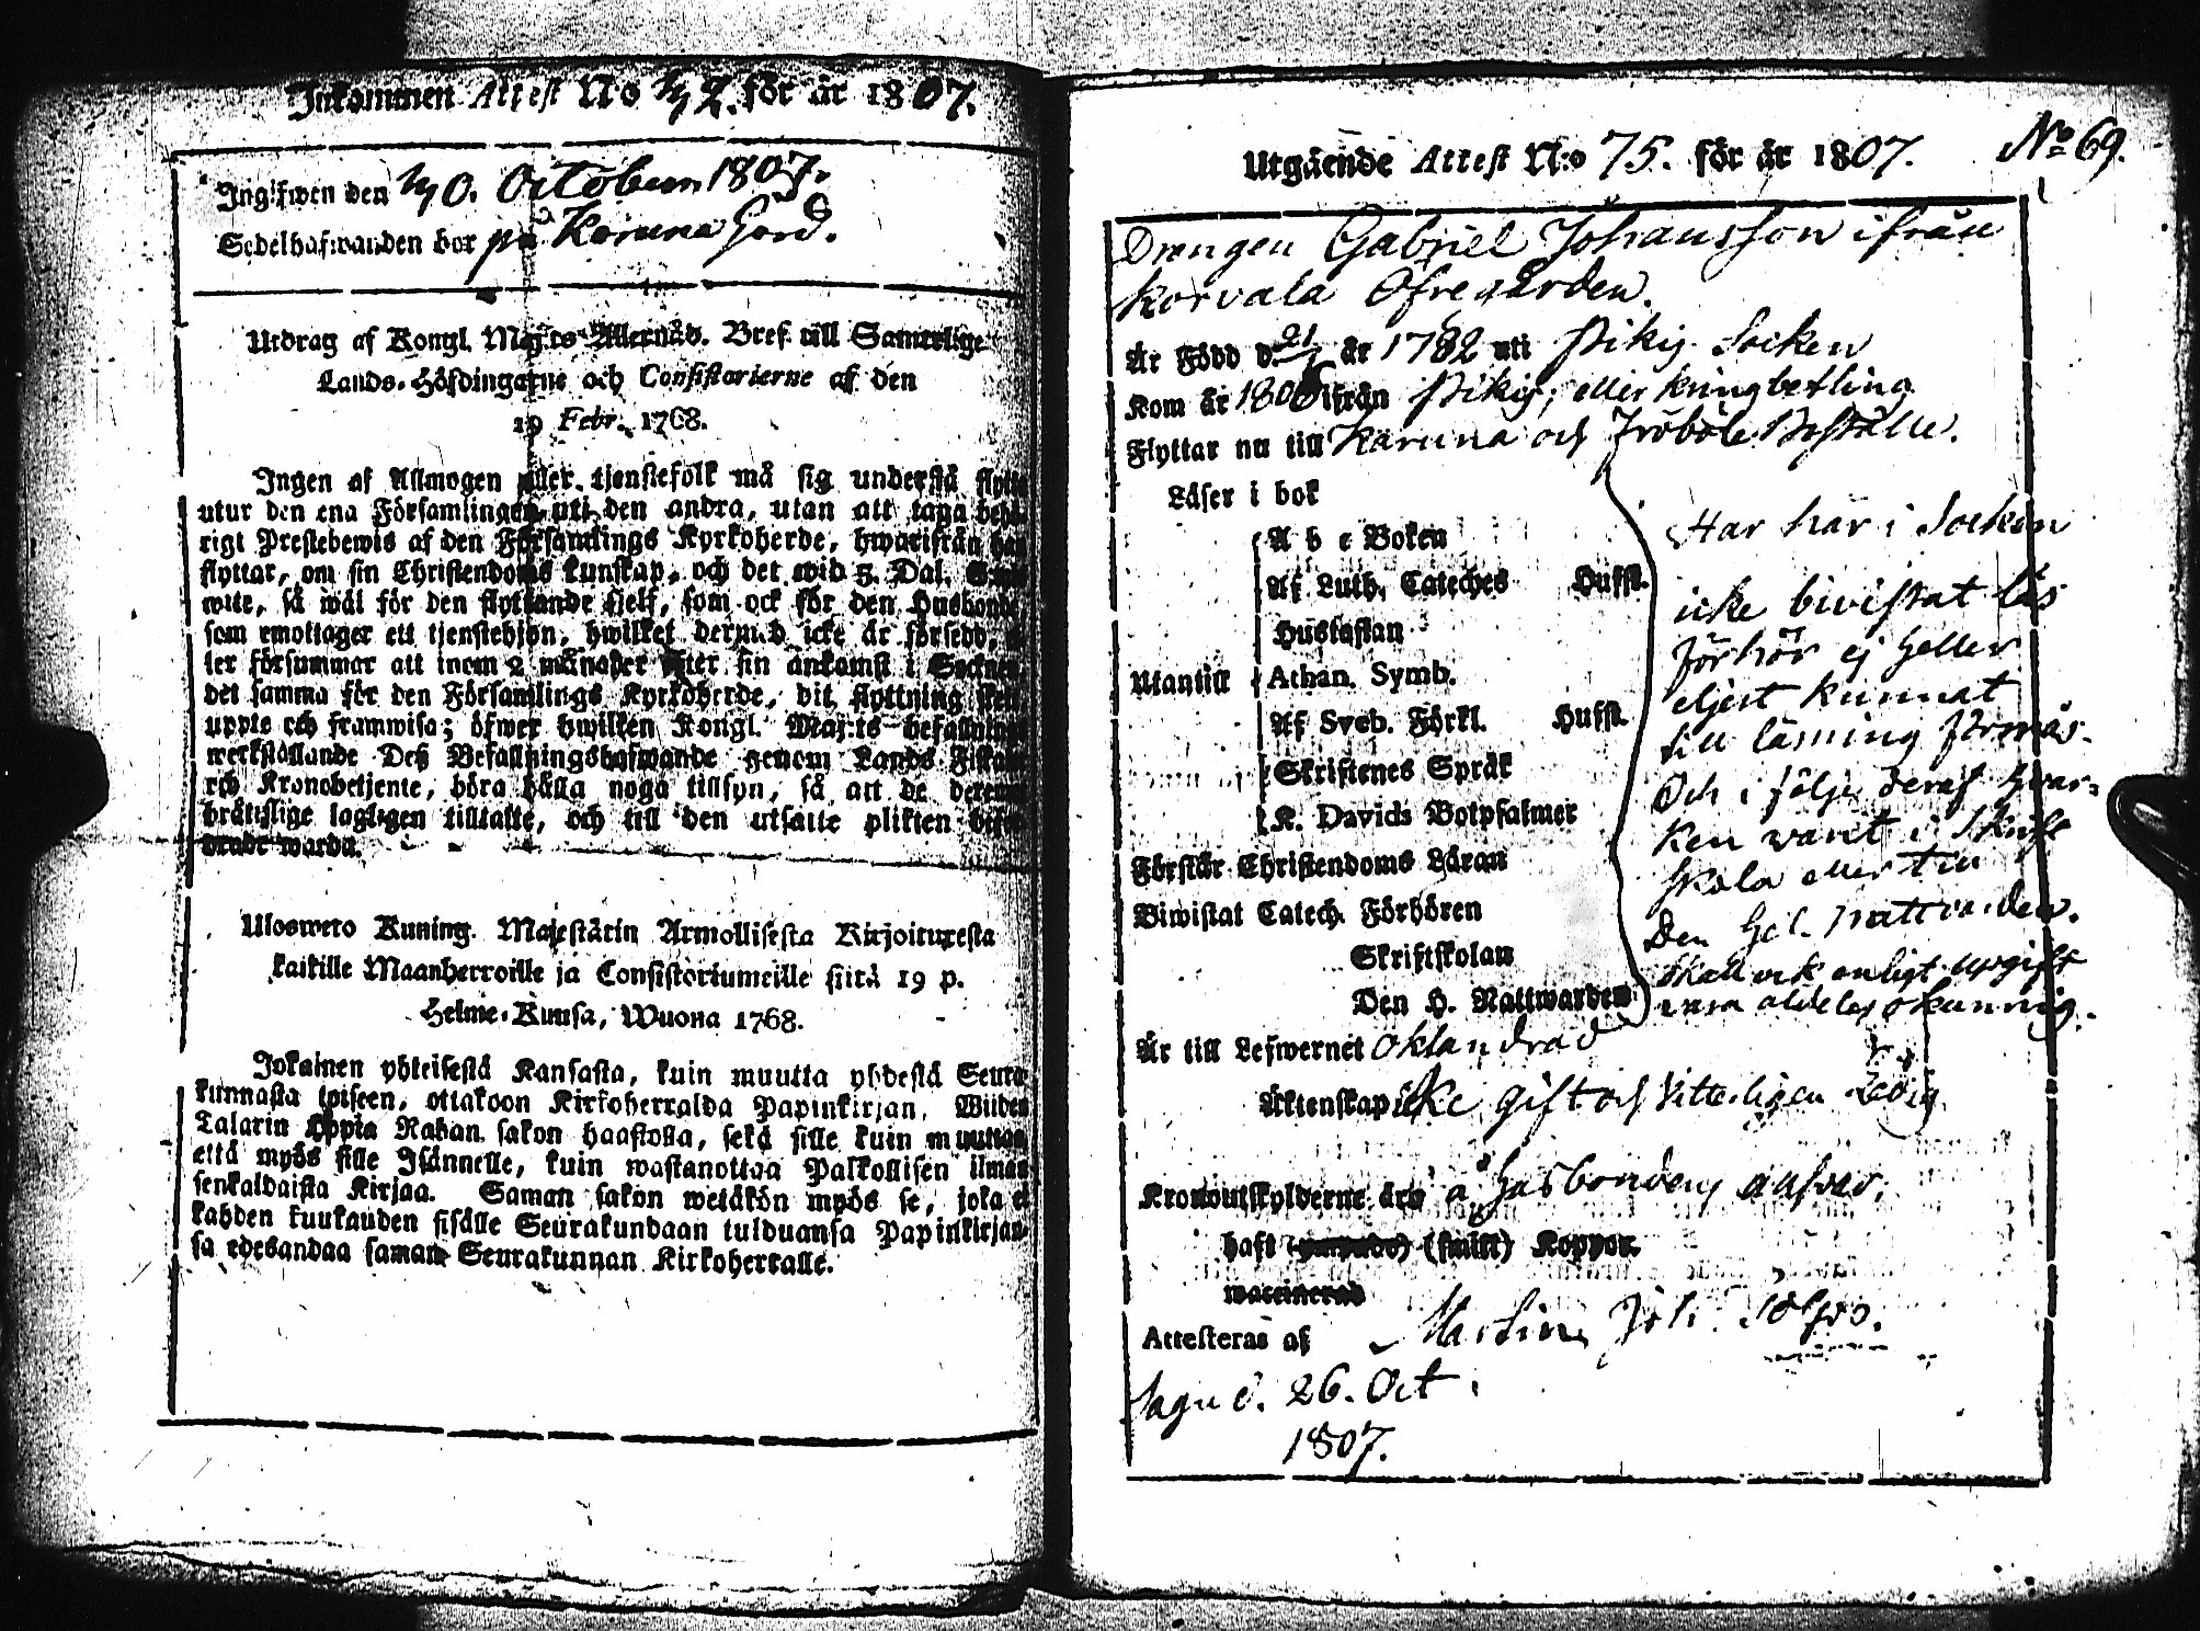 Inkommen Attest No 42. för år 1807.
Ingifwen den 40. October 1807.
Sedelhafwanden bor på Karuna Gård.
Utdrag af Kongl. Maj:ts Allernåd. Bref till Samtelige
Lands-Höfdingarne och Consistorierne af den
19 Febr. 1768.
Ingen af Allmogen eller tjenstefolk må sig understå flytta
utur den ena Församlingen uti den andra, utan att taga behö-
rigt Prestebewis af den Församlings Kyrkoherde, hwarifrån han
flyttar, om sin Christendoms kunskap, och det wid 5. Dal. S:mts
wite, så wäl för den flyttande sjelf, som ock för den Husbonde,
som emottager ett tjenstehjon, hwilket dermed icke är försedt,
ler försummar att inom 2 månader efter sin ankomst i Socknen
det samma för den Församlings Kyrkoherde, dit flyttning sker,
uppte och framwisa; öfwer hwilken Kongl. Maj:ts befallnings
werkställande Deß Befallningshafwande genom Lands Fiskaler
och Kronobetjente, böra hålla noga tillsyn, så att de deremot
bråtslige lagligen tilltalte, och till den utsatte plikten
warda.
Uloswero Kuning. Majestätin Armollisesta Kirjoituxesta
kaikille Maanherroille ja Consistoriumeille siitä 19 p.
Helme-Kuusa, Wuona 1768.
Jokainen yhteisestä Kansasta, kuin muutta yhdestä Seura-
kunnasta toiseen, ottakoon Kirkoherralda Papinkirjan, Wiiden
Talarin Hopia Rahan sakon haastolla, sekä sille kuin muuttaa,
että myös sille Isännelle, kuin wastanottaa Palkollisen ilman
senkaldaista Kirjaa. Saman sakon wetäkön myös se, joka ei
kahden kuukauden sisälle Seurakundaan tulduansa Papinkirjan-
sa edesandaa saman Seurakunnan Kirkoherralle.
Utgående Attest N:o 75. för år 1807. No 69.
Drengen Gabriel Johansson ifrån
Korvala Öfregården.
Är Född d. 21 år 1782 uti Pikis Socken
Kom år 1806 ifrån Pikis, eller kringbetling
Flyttar nu till Karuna och Fröböle
Läser i bok
A b c Boken
Af Luth. Cateches Hufst.
Hustaflan
Utantill Athan. Symb.
Af Sveb. Förkl. Hufst.
Skriftenes Språk
K. Davids Botpsalmer
Förstår Christendoms Läran
Biwistat Catech. Förhören
Skriftskolan
Den H. Nattwarden
Har här i Socken
icke bivistat läs
förhör ej heller
eljest kunnat
till läsning förmås.
Och i följe deraf hvar-
ken warit i Skrift
skola eller till
Den Hel. Nattvarden.
Skall ock enligt upgift
vara aldeles okunnig.
Är till Lefwernet oklandrad
Äktenskap icke gift och vitterligen ledig
Kronoutskylderne äro å Husbondens
haft (smått) Koppor.
waccinerad
Attesteras af Martin Joh.
Sagu d. 26. Oct.
1807.